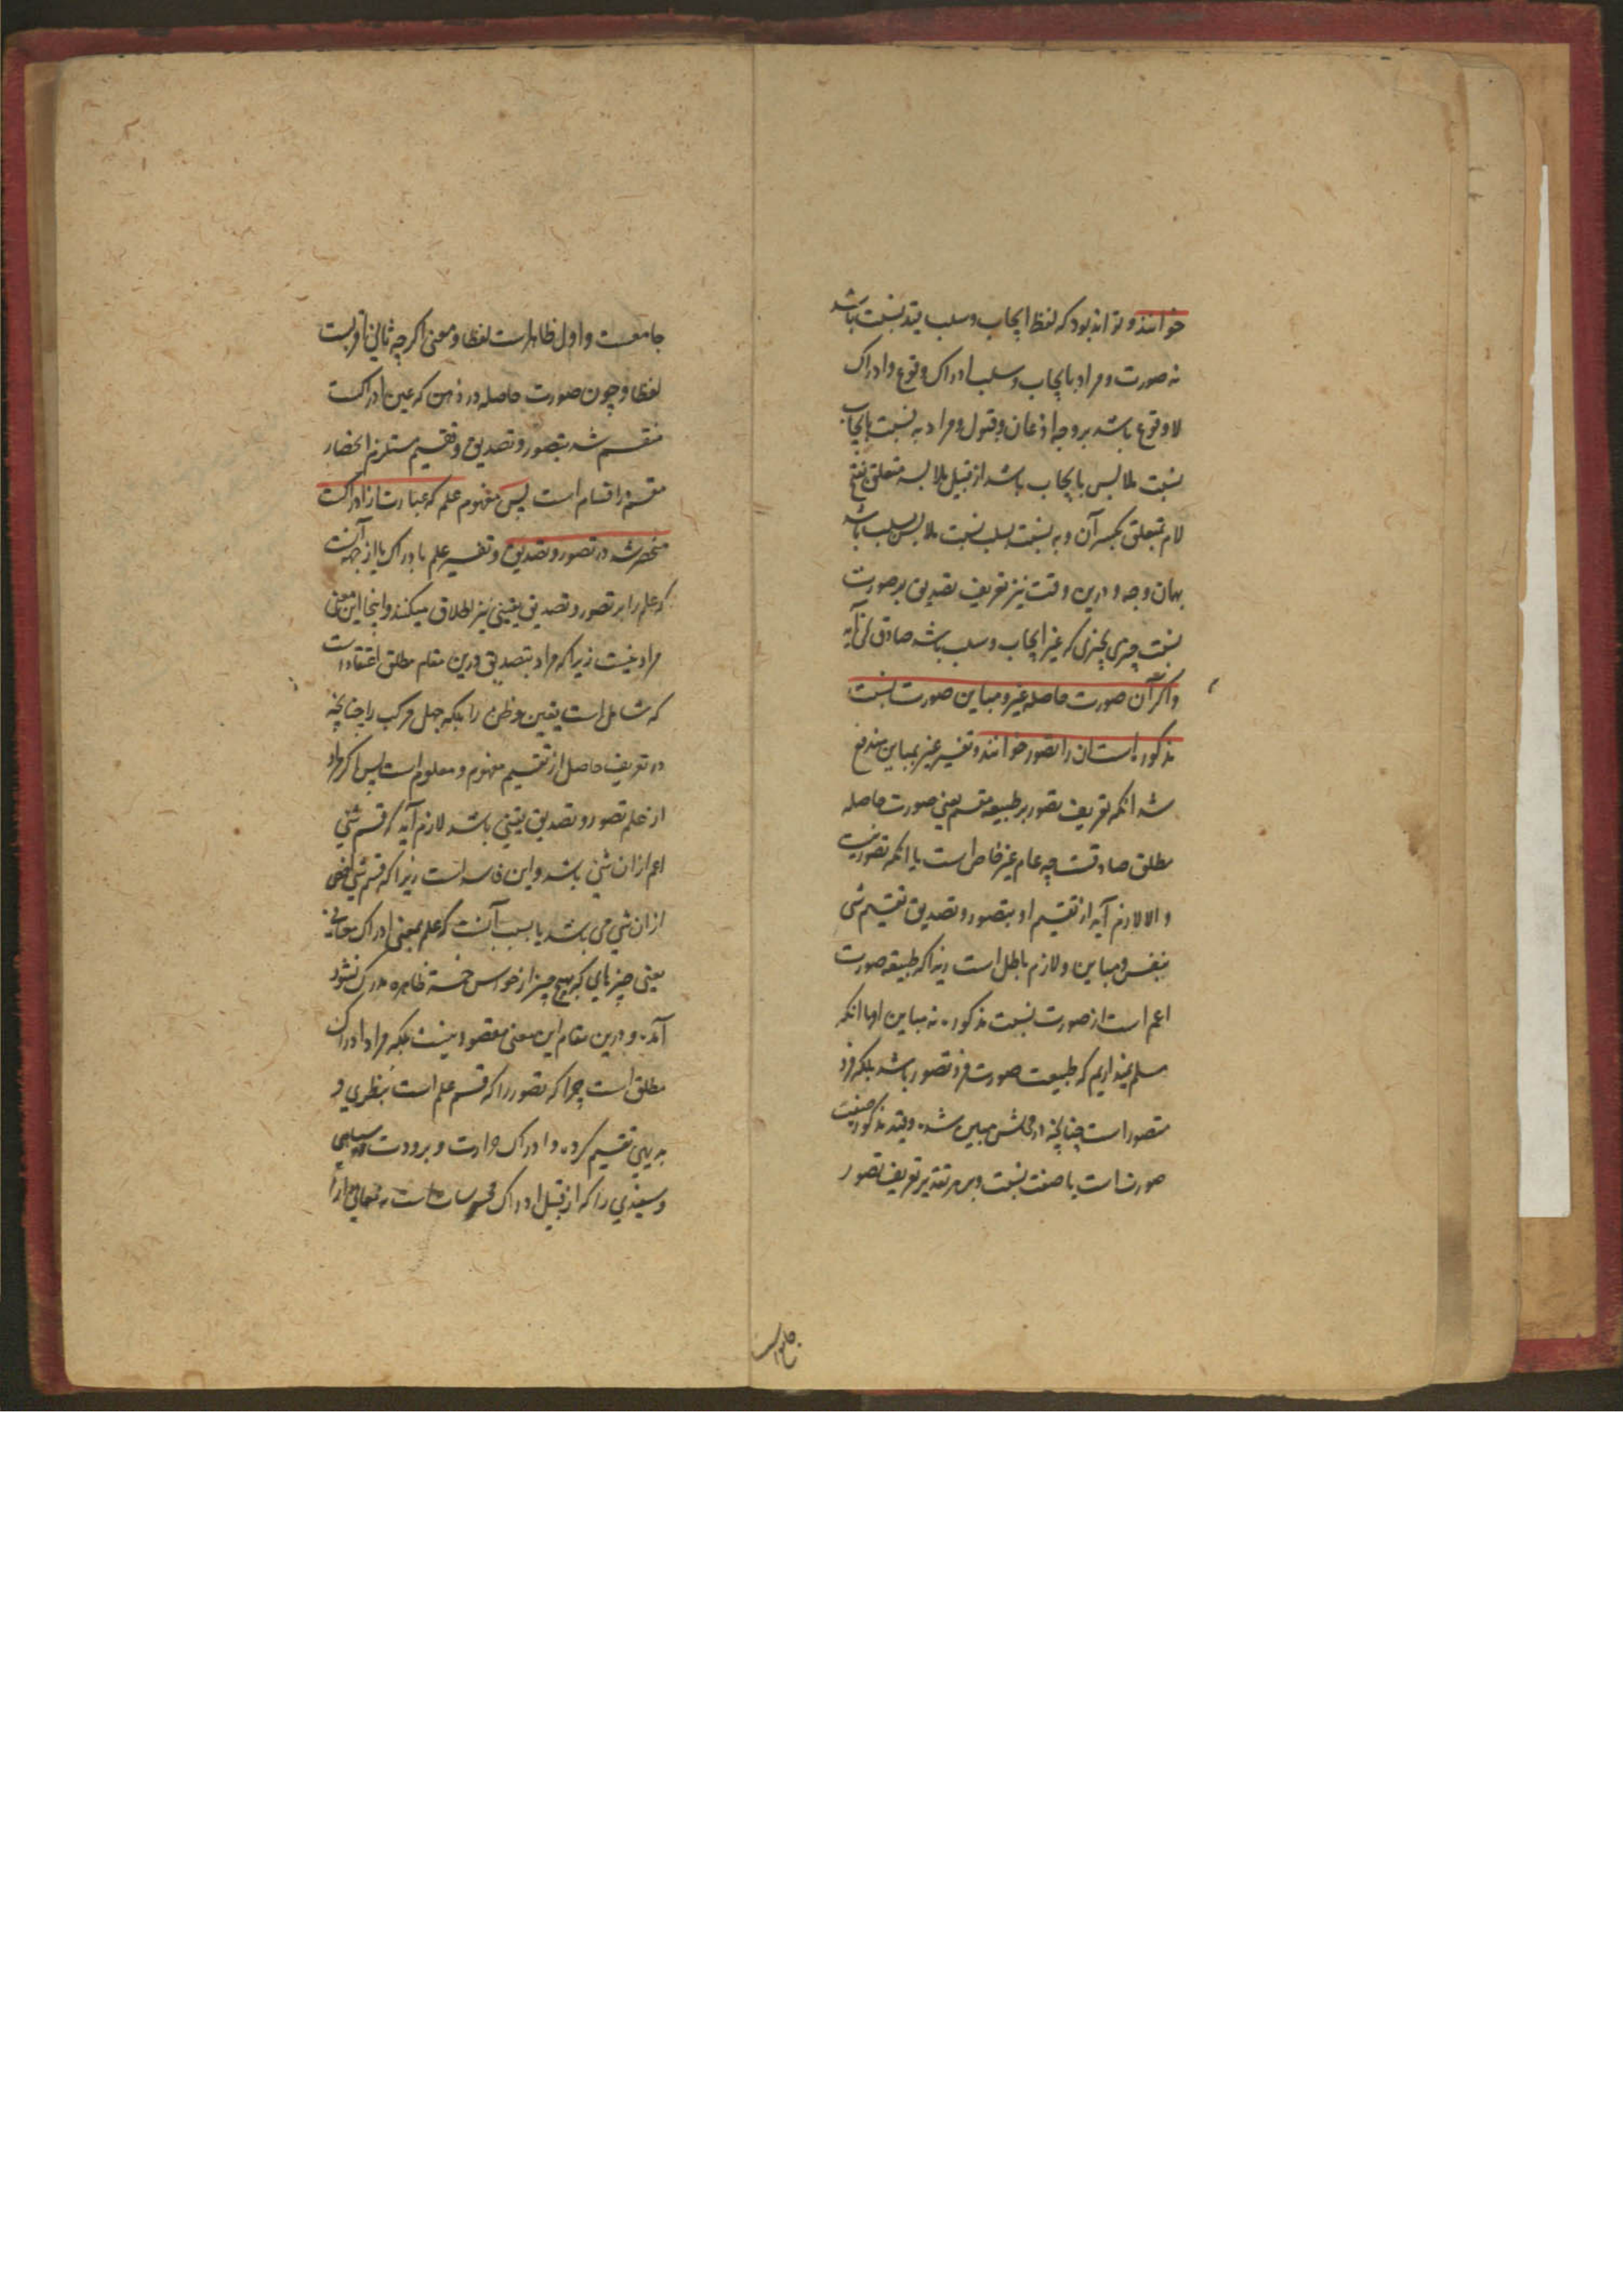 خوانند و تواند بود که لفظ ایجاب و سلب قید نسبت باشد
نه صورت و مراد بایجاب و سلب ادراک وقوع و ادراک
لاوقوع باشد بر وجه اذعان و قبول و مراد به نسبت بایجاب
نسبت ملابس بایجاب باشد از قبیل ملابسه متعلق بفتح
لام بمتعلق بکسر آن و به نسبت بسلب نسبت ملابس بسلب باشد
بهمان وجه و درین وقت نیز تعریف تصدیق بر صورت
نسبت چیزی بچیزی که غیر ایجاب و سلب باشد صادق نمی آید
و اگر آن صورت حاصله غیر و مباین صورت نسبت
مذکوره است آن را تصور خوانند و تفسیر غیر بمباین مندفع
شد آنکه تعریف تصور بر طبیعه مقسم یعنی صورت حاصله
مطلق صادقست چه عام غیر خاص است با آنکه تصور نیست
و الا لازم آید از تقسیم او بتصور و تصدیق تقسیم شی
بنفس و مباین و لازم باطل است زیرا که طبیعه صورت
اعم است از صورت نسبت مذکوره نه مباین او با آنکه
مسلم نمیداریم که طبیعت صورت فرد تصور باشد بلکه فرد
متصور است چنانچه در محلش مبین شده و قید مذکور صفت
صورت است یا صفت نسبت و بر هر تقدیر تعریف تصور
جامعست
جامعست و اول ظاهر است لفظا و معنی اگر چه ثانی اقربست
لفظا و چون صورت حاصله در ذهن که عین ادراکست
منقسم شد بتصور و تصدیق و تقسیم مستلزم انحصار
مقسم در اقسام است پس مفهوم علم که عبارت از ادراکست
منحصر شد در تصور و تصدیق و تفسیر علم بادراک یا از جهه آنست
که علم را بر تصور و تصدیق یقینی نیز اطلاق میکنند و اینجا این معنی
مراد نیست زیرا که مراد بتصدیق درین مقام مطلق اعتقاد است
که شامل است یقین و ظن را بلکه جهل مرکب را چنانچه
در تعریف حاصل از تقسیم مفهوم و معلوم است پس اگر مراد
از علم تصور و تصدیق یقینی باشد لازم آید که قسم شئی
اعم از ان شئی باشد و این فاسد است زیرا که قسم شئی اخص
از ان شئی می باشد یا بسبب آنست که علم بمعنی ادراک معانی
یعنی چیزهای که بهیچ چیز از حواس خمسه ظاهره مدرک نشود
آمده و درین مقام این معنی مقصود نیست بلکه مراد ادراک
مطلق است چرا که تصور را که قسم علم است بنظری و
بدیهی تقسیم کرده و ادراک حرارت و برودت و سیاهی
و سفیدی را که از قبیل ادراک محسوسات است نه معانی